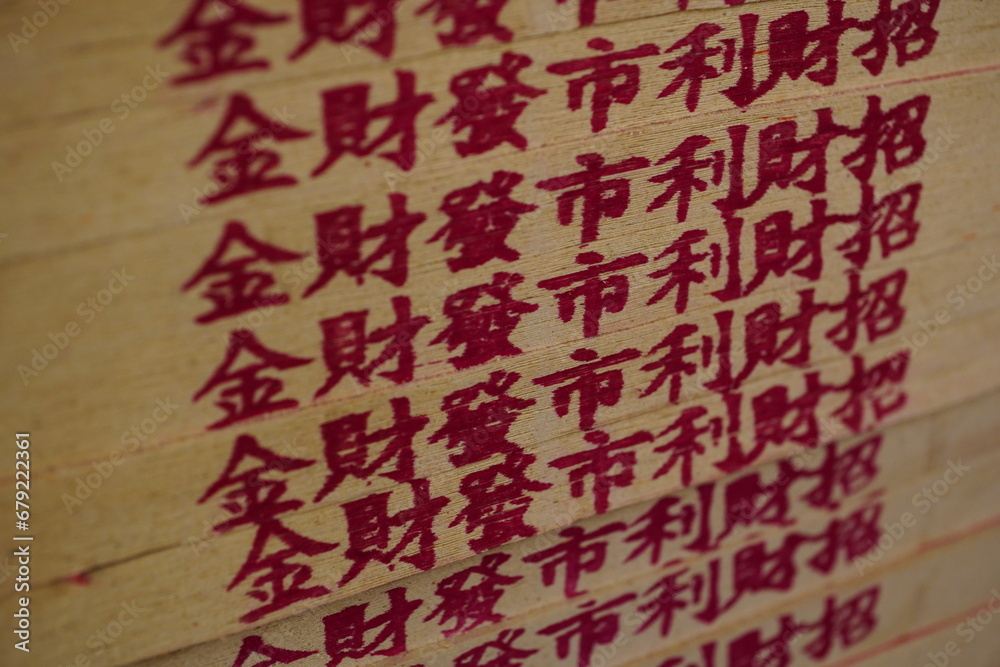 發財金
招財利市發財金
招財利市發財金
招財利市發財金
招財利市發財金
招財利市發財金
招財利市發財金
招財利市發
招財
Adobe Stock | #679222361